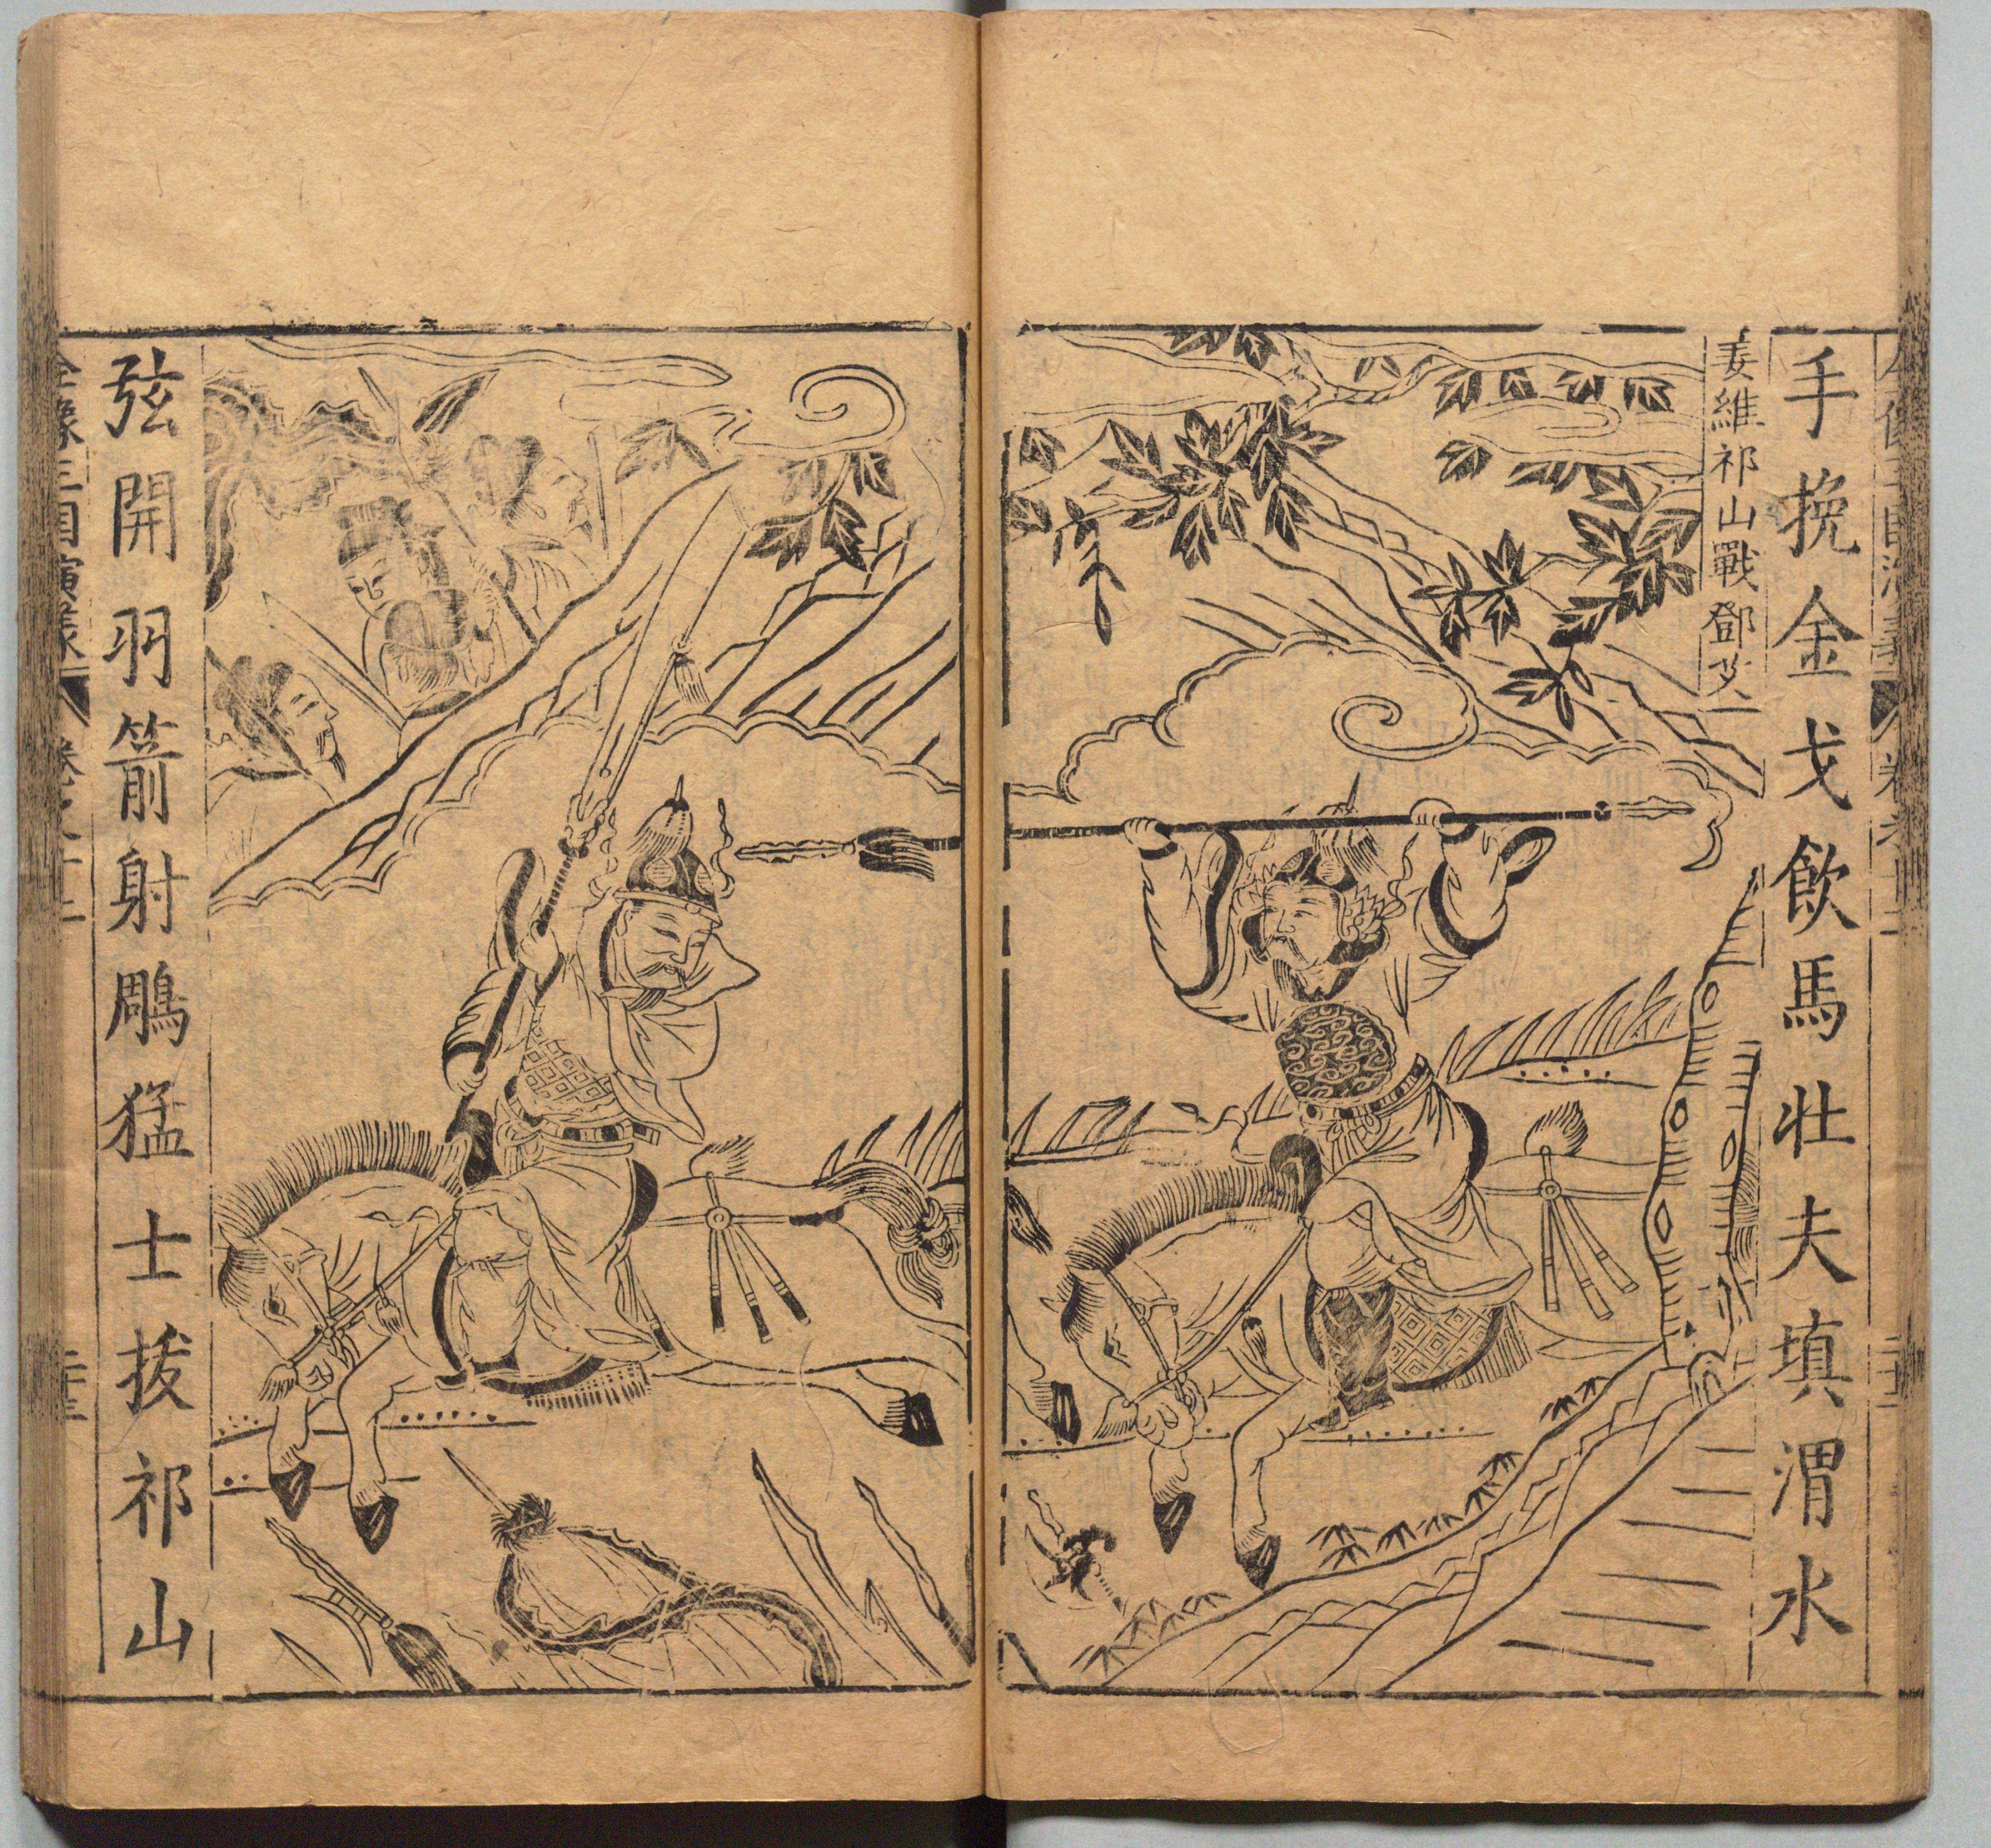 手挽金戈飲馬壯夫填渭水
姜維祁山戰鄧艾
弦開羽箭射鵰猛士拔祁山
全像三國演義